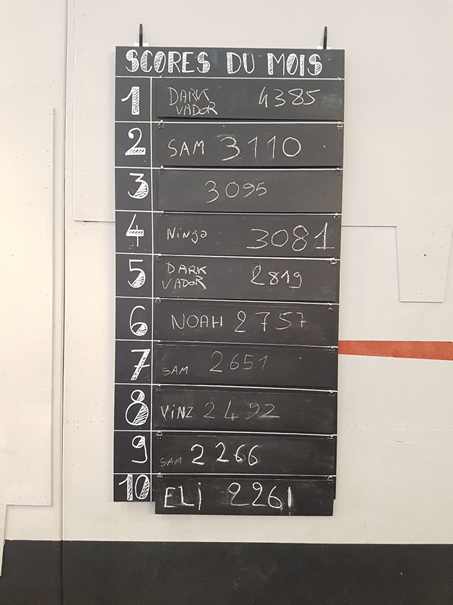 SCORES DU MOIS
1 DARK VADOR 4385
2 SAM 3110
3 3095
4 Ninja 3081
5 DARK VADOR 2819
6 NOAH 2757
7 SAM 2651
8 ViNZ 2492
9 SAM 2266
10 ELi 2261